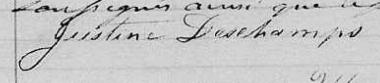 soussignés ainsi que le
Justine Deschamps